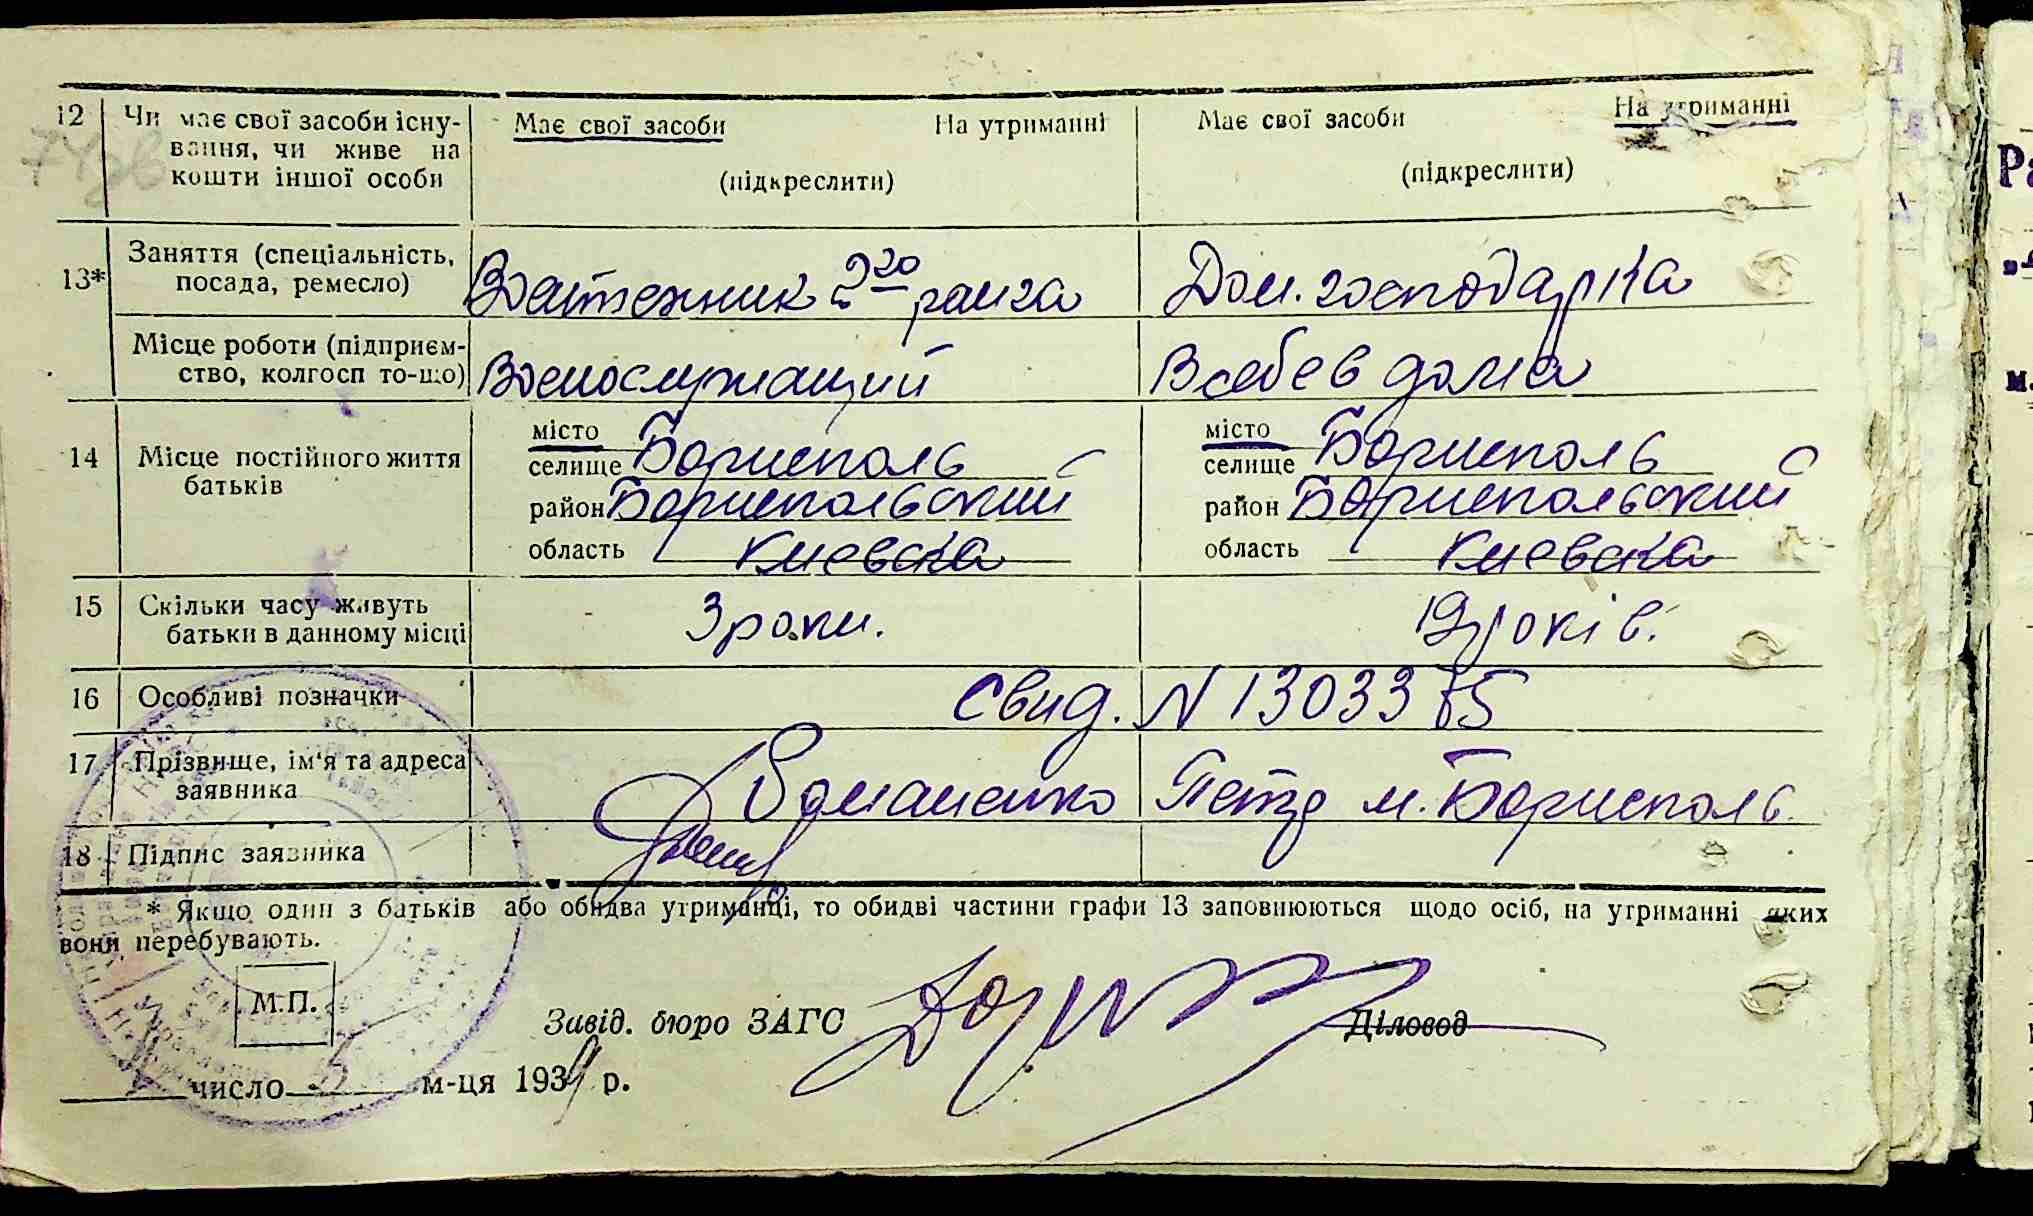 12 Чи має свої засоби існу- Має свої засоби На утриманні Має свої засоби На утриманні
вання, чи живе на
кошти іншої особи (підкреслити) (підкреслити)
13* Заняття (спеціальність,
посада, ремесло) Воєнтехник 2го ранга Дом. господарка
Місце роботи (підприєм-
ство, колгосп то-що) Воєнослужащий В себе в дома
14 Місце постійного життя
батьків
місто
селище Борисполь
район Бориспольський
область Киевска
місто
селище Борисполь
район Бориспольский
область Киевска
15 Скільки часу живуть
батьки в данному місці 3 роки. 19 років.
16 Особливі позначки Свид. N 1303375
17 Прізвище, ім'я та адреса
заявника Романенко Петро м. Борисполь.
18 Підпис заявника
* Якщо один з батьків або обидва утриманці, то обидві частини графи 13 заповнюються щодо осіб, на утриманні яких
вони перебувають.
М.П.
Завід. бюро ЗАГС Діловод
число 5 м-ця 1939 р.